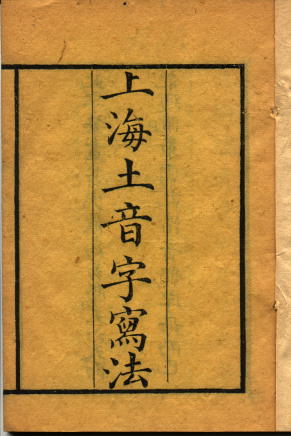 上海土音字寫法